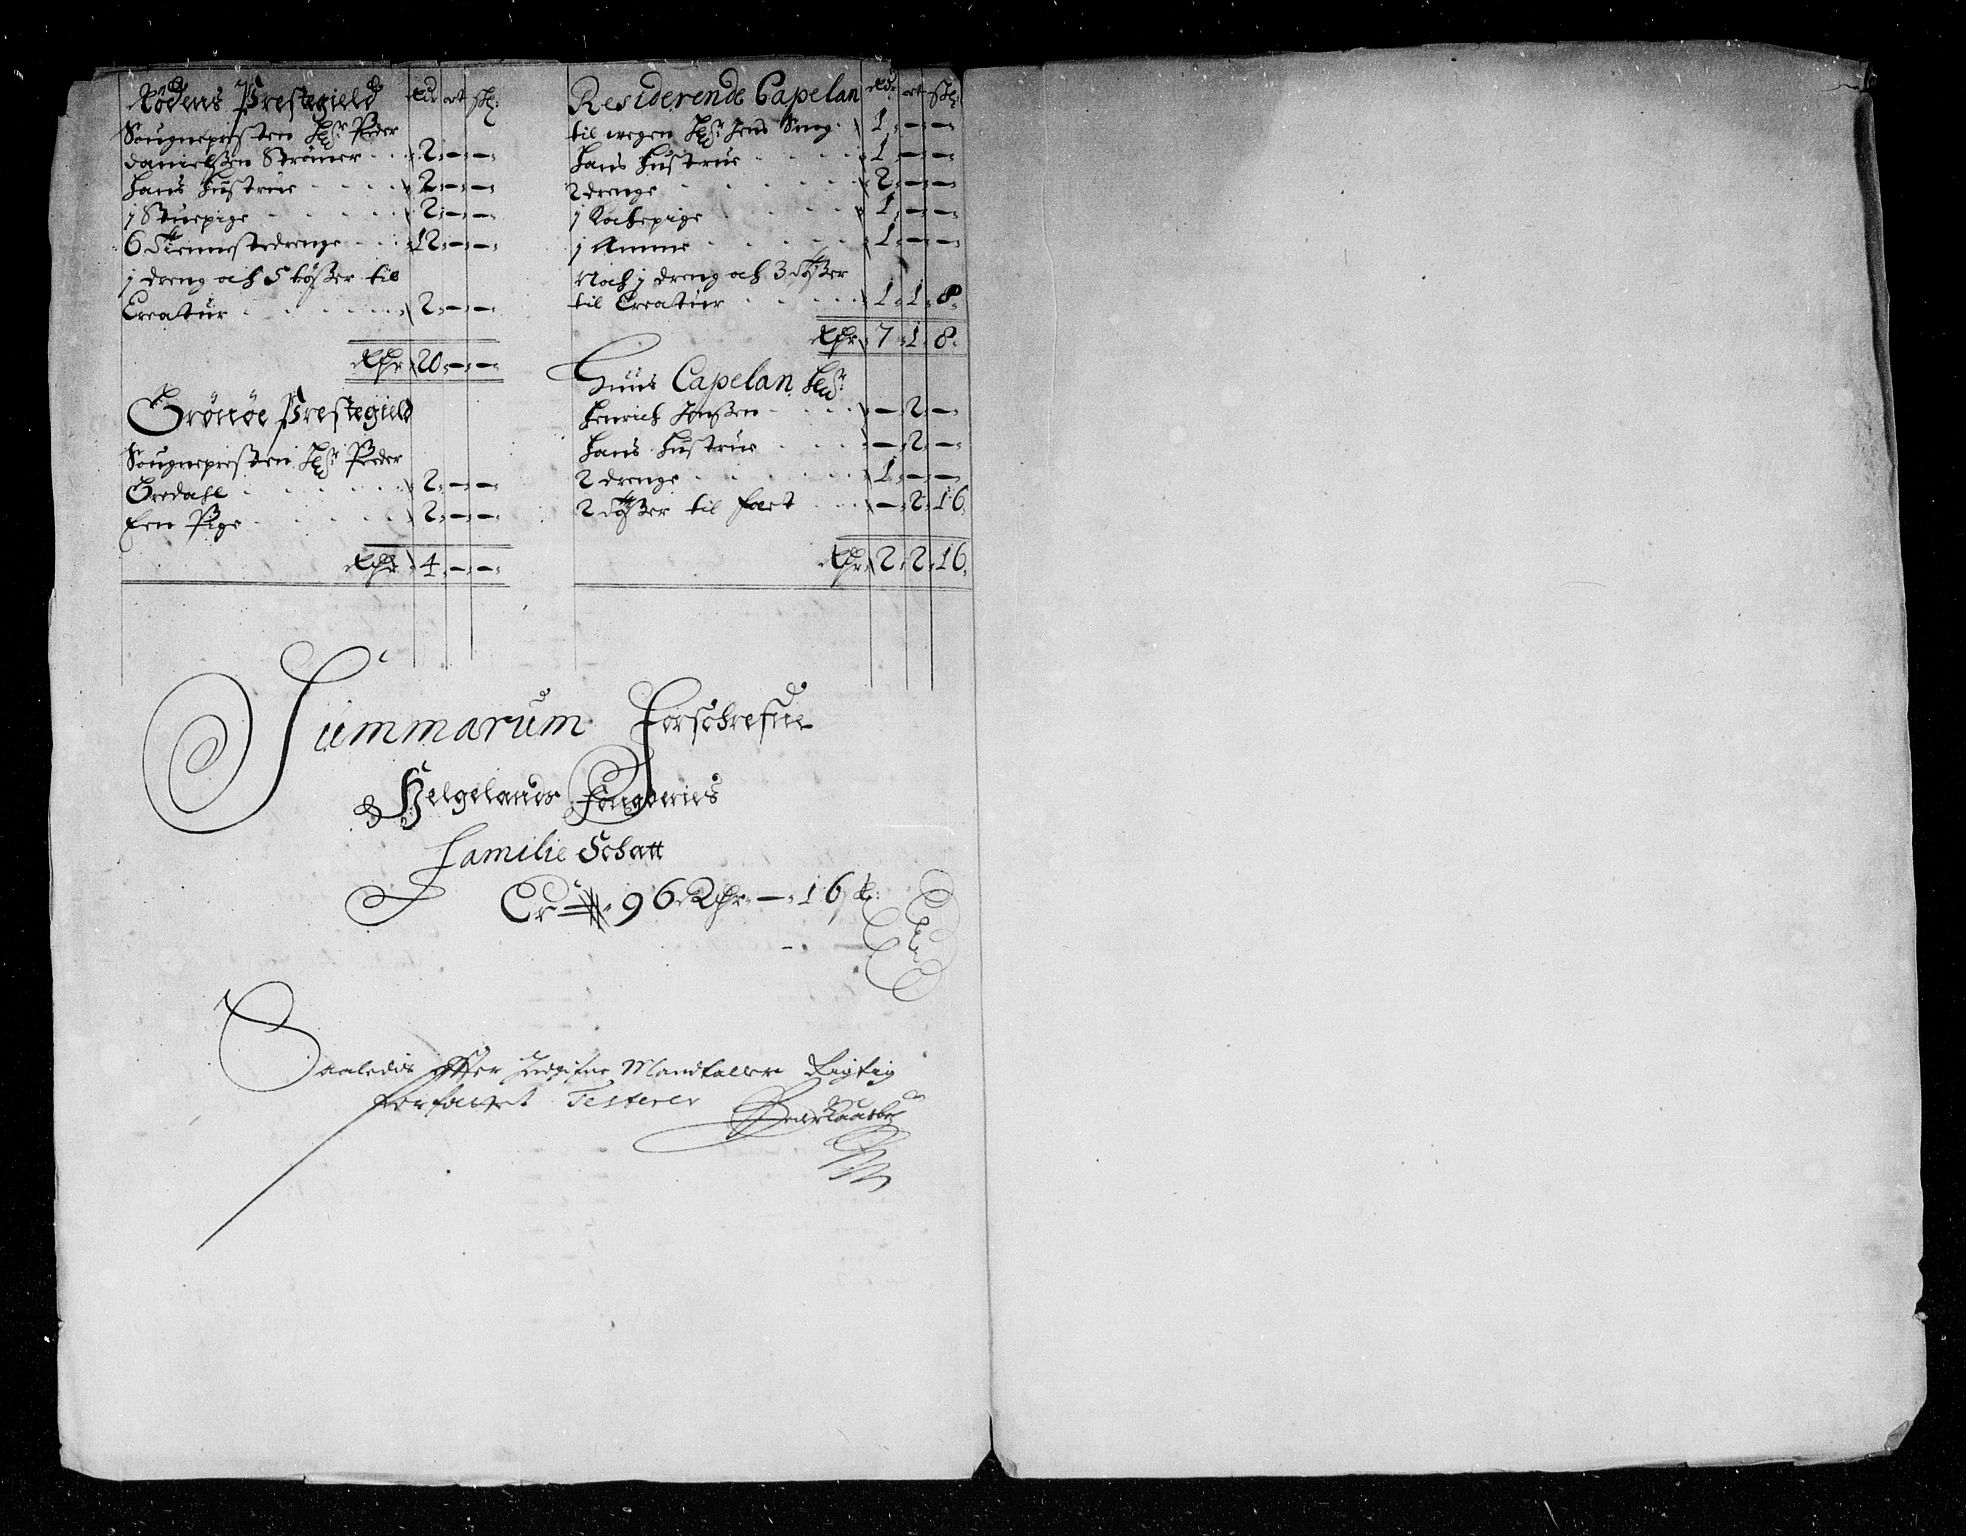 Rødens Prestegield Rdr ort sk:
Sougnepresten Hr Peder
Danielsen Strømer 2 - -
Hans Hustrue 2 - -
j Stuepige 2 - -
6 Tiennistedrenge 12 - -
j dreng och 5 tøsser til
Creatur 2 - -
Rdr 20 - -
Grönöe Prestegield
Sougnepresten Hr Peder
Gredahl 2 - -
Een Pige 2 - -
Rdr 4 - -
Residerende Capelan Rdr ort sk:
til wegen Hr Jens 1 - -
Hans Hustrue 1 - -
2 drenge 2 - -
j Kochepige 1 - -
j Amme 1 - -
Noch j dreng och 3 tøsser
til Creatur 1 1 8
Rdr 7 1 8
Huus Capelan Hr
Henrich Jensen - 2 -
Hans Hustrue - 2 -
2 drenge 1 - -
2 tøsser til fæet - 2 16
Rdr 2 2 16
Summarum Forschrefne
Helgelands Fougderies
Familie Schatt
Er 96 Rdr - 16 sk:
Saaledis efter Indgifne Mandtaller Rigtig
forfattet Testerer